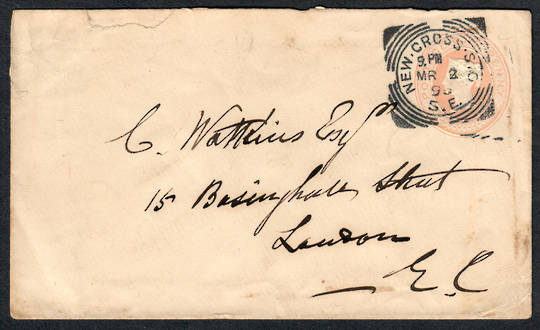 NEW.CROSS.S.O
9.PM
MR 2
S.E.
C. Watkins Esqr
15 Basinghall Street
London
E.C